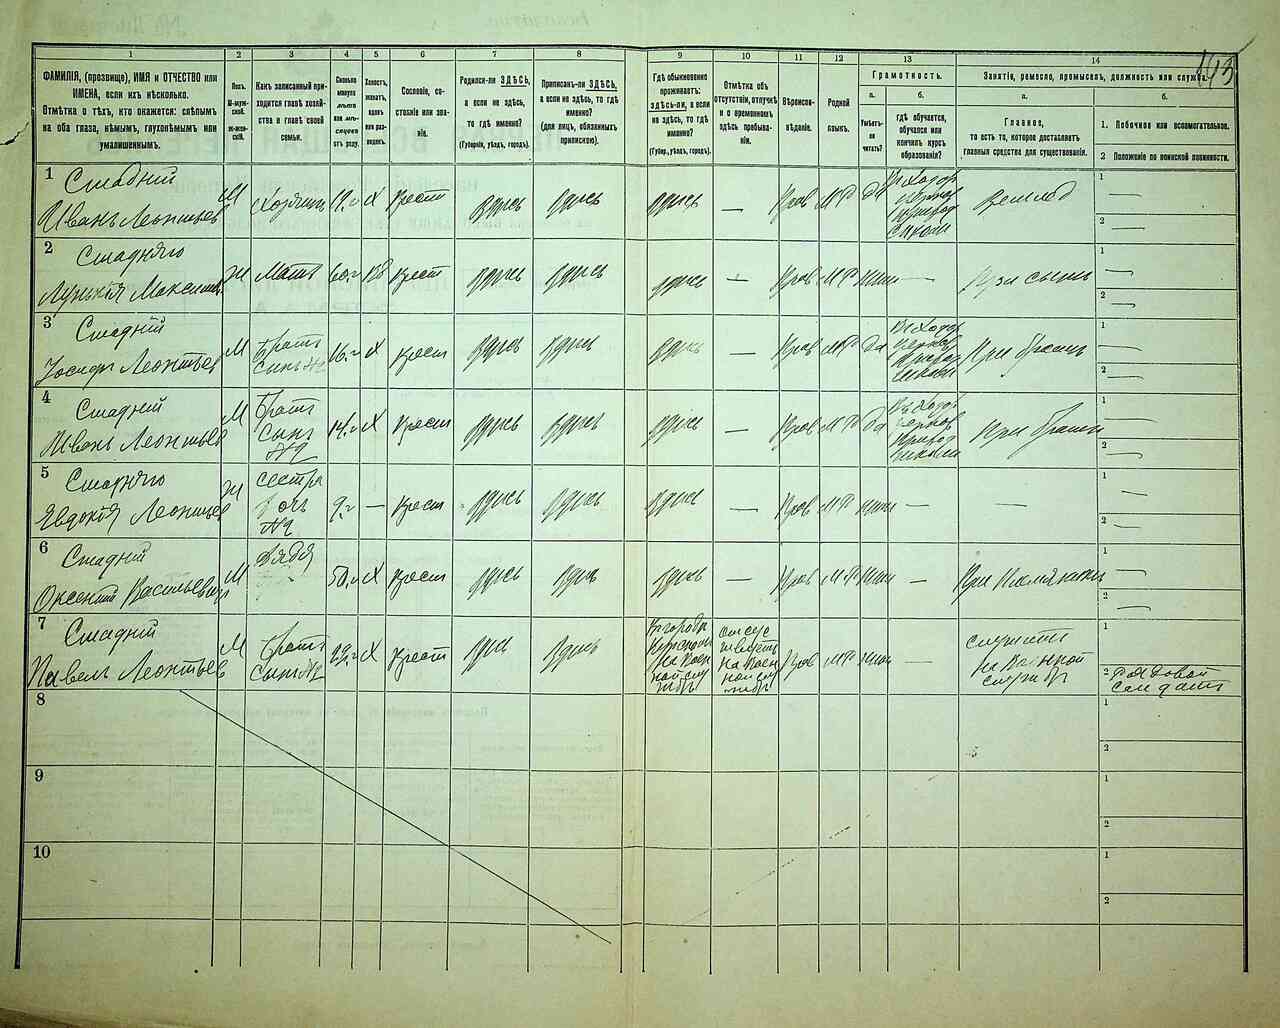 1
2
3
4
5
6
7
8
9
10
11
12
13
14
193
ФАМИЛІЯ, (прозвище), ИМЯ и ОТЧЕСТВО или
ИМЕНА, если ихъ нѣсколько.
Отмѣтка о тѣхъ, кто окажется: слѣпымъ
на оба глаза, нѣмымъ, глухонѣмымъ или
умалишеннымъ.
Полъ.
М-мужской.
Ж-женскій.
Какъ записанный приходится главѣ хозяйства и главѣ своей
семьи.
Сколько
минуло
лѣтъ
или мѣсяцевъ
отъ роду.
Холостъ,
женатъ,
вдовъ
или разведенъ.
Сословіе, состояніе или званіе.
Родился-ли ЗДѢСЬ,
а если не здѣсь,
то гдѣ именно?
(Губернія, уѣздъ, городъ).
Приписанъ-ли ЗДѢСЬ,
а если не здѣсь, то гдѣ
именно?
(для лицъ, обязанныхъ
припискою).
Гдѣ обыкновенно
проживаетъ:
здѣсь-ли, а если
не здѣсь, то гдѣ
именно?
(Губер., уѣздъ, городъ).
Отмѣтка объ
отсутствіи, отлучкѣ
и о временномъ
здѣсь пребываніи.
Вѣроисповѣданіе.
Родной
языкъ.
Грамотность.
а.
Умѣетъ-ли
читать?
б.
гдѣ обучается,
обучался или
кончилъ курсъ
образованія?
Занятіе, ремесло, промыселъ, должность или служба.
а.
Главное,
то есть то, которое доставляетъ
главныя средства для существованія.
б.
1. Побочное или вспомогательное.
2 Положеніе по воинской повинности.
1
Стадній
Иванъ Леонтьев
М
Хозяинъ
Х
Крест
здѣсь
здѣсь
здѣсь
—
Прав
М Р
да
землед
1 —
2 —
2
Стадняго
Максимов
Ж
Мать
60
Вд
Крест
здѣсь
здѣсь
здѣсь
—
Прав
М Р
—
При сынѣ
1 —
2 —
3
Стадній
Іосифъ Леонтьев
М
Братъ
Сынъ №2
16
Х
Крест
здѣсь
здѣсь
здѣсь
—
Прав
М Р
да
При братѣ
1 —
2 —
4
Стадній
Иванъ Леонтьев
М
Братъ
Сынъ
№2
14
Х
Крест
здѣсь
здѣсь
здѣсь
—
Прав
М Р
да
При братѣ
1 —
2 —
5
Стадняго
Евдокія Леонтьев
Ж
сестра
дочь
№2
9
—
Крест
здѣсь
здѣсь
здѣсь
—
Прав
М Р
—
—
1 —
2 —
6
Стадній
Оксентій Васильевич
М
Дядя
50
Х
Крест
здѣсь
здѣсь
здѣсь
—
Прав
М Р
—
При племянник
1 —
2 —
7
Стадній
Павелъ Леонтьев
М
Братъ
Сынъ №2
Х
Крест
здѣсь
здѣсь
на воен
ной слу
жбѣ
на воен
ной слу
жбѣ
Прав
М Р
—
служитъ
на военной
службѣ
1
2 рядовой
солдатъ
8
1
2
9
1
2
10
1
2